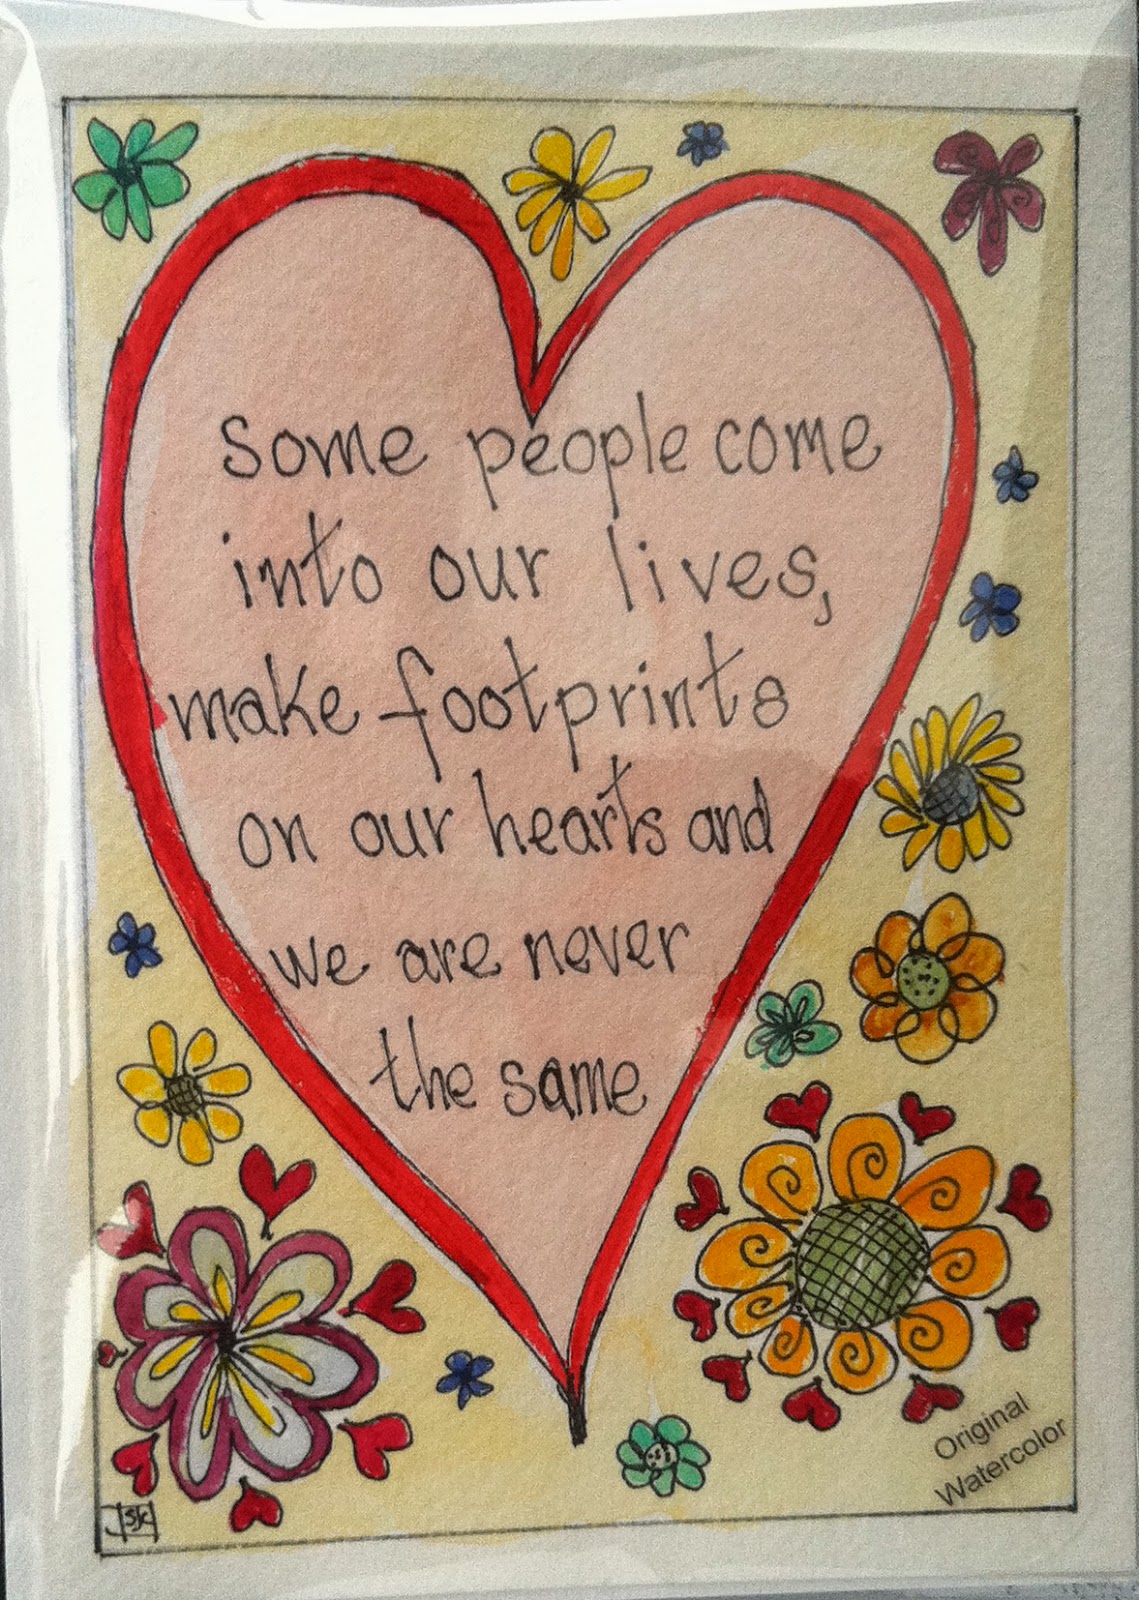 some people come
into our lives,
make footprints
on our hearts and
we are never
the same
Original
Watercolor